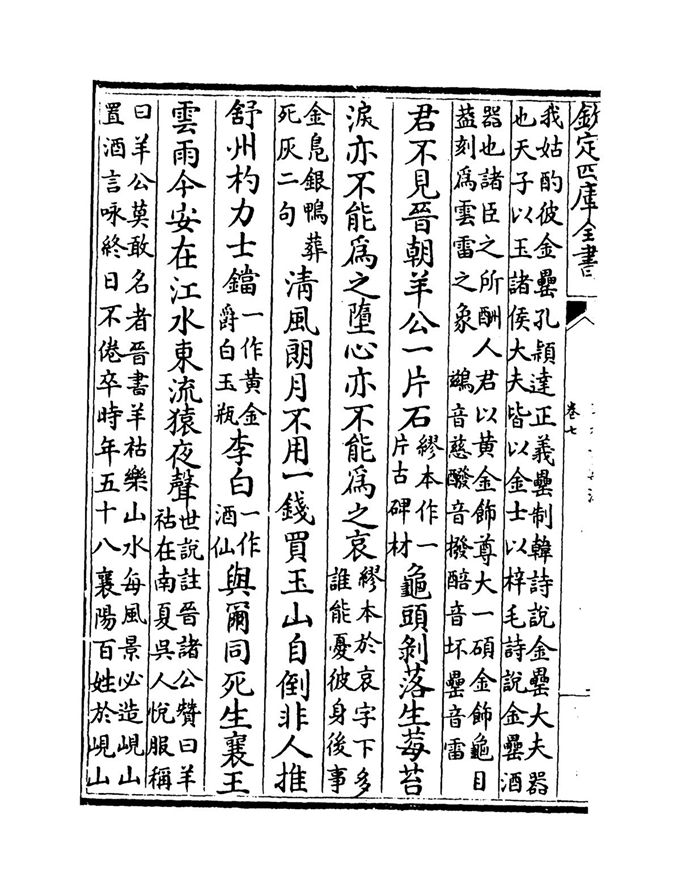 欽定四庫全書
卷七
我姑酌彼金罍孔穎達正義罍制韓詩說金罍大夫器
也天子以玉諸侯大夫皆以金士以梓毛詩說金罍酒
器也諸臣之所酬人君以黃金飾尊大一碩金飾龜目
葢刻為雲雷之象 鷀音慈醱音撥醅音坏罍音雷
君不見晉朝羊公一片石繆本作一片古碑材龜頭剝落生莓苔
淚亦不能為之墮心亦不能為之哀繆本於哀字下多誰能憂彼身後事
金鳬銀鴨葬死灰二句清風朗月不用一錢買玉山自倒非人推
舒州杓力士鐺一作黃金爵白玉瓶李白一作酒仙與爾同死生襄王
雲雨今安在江水東流猿夜聲世說註晉諸公贊曰羊祜在南夏吳人悅服稱
曰羊公莫敢名者晉書羊祜樂山水每風景必造峴山
置酒言咏終日不倦卒時年五十八襄陽百姓於峴山